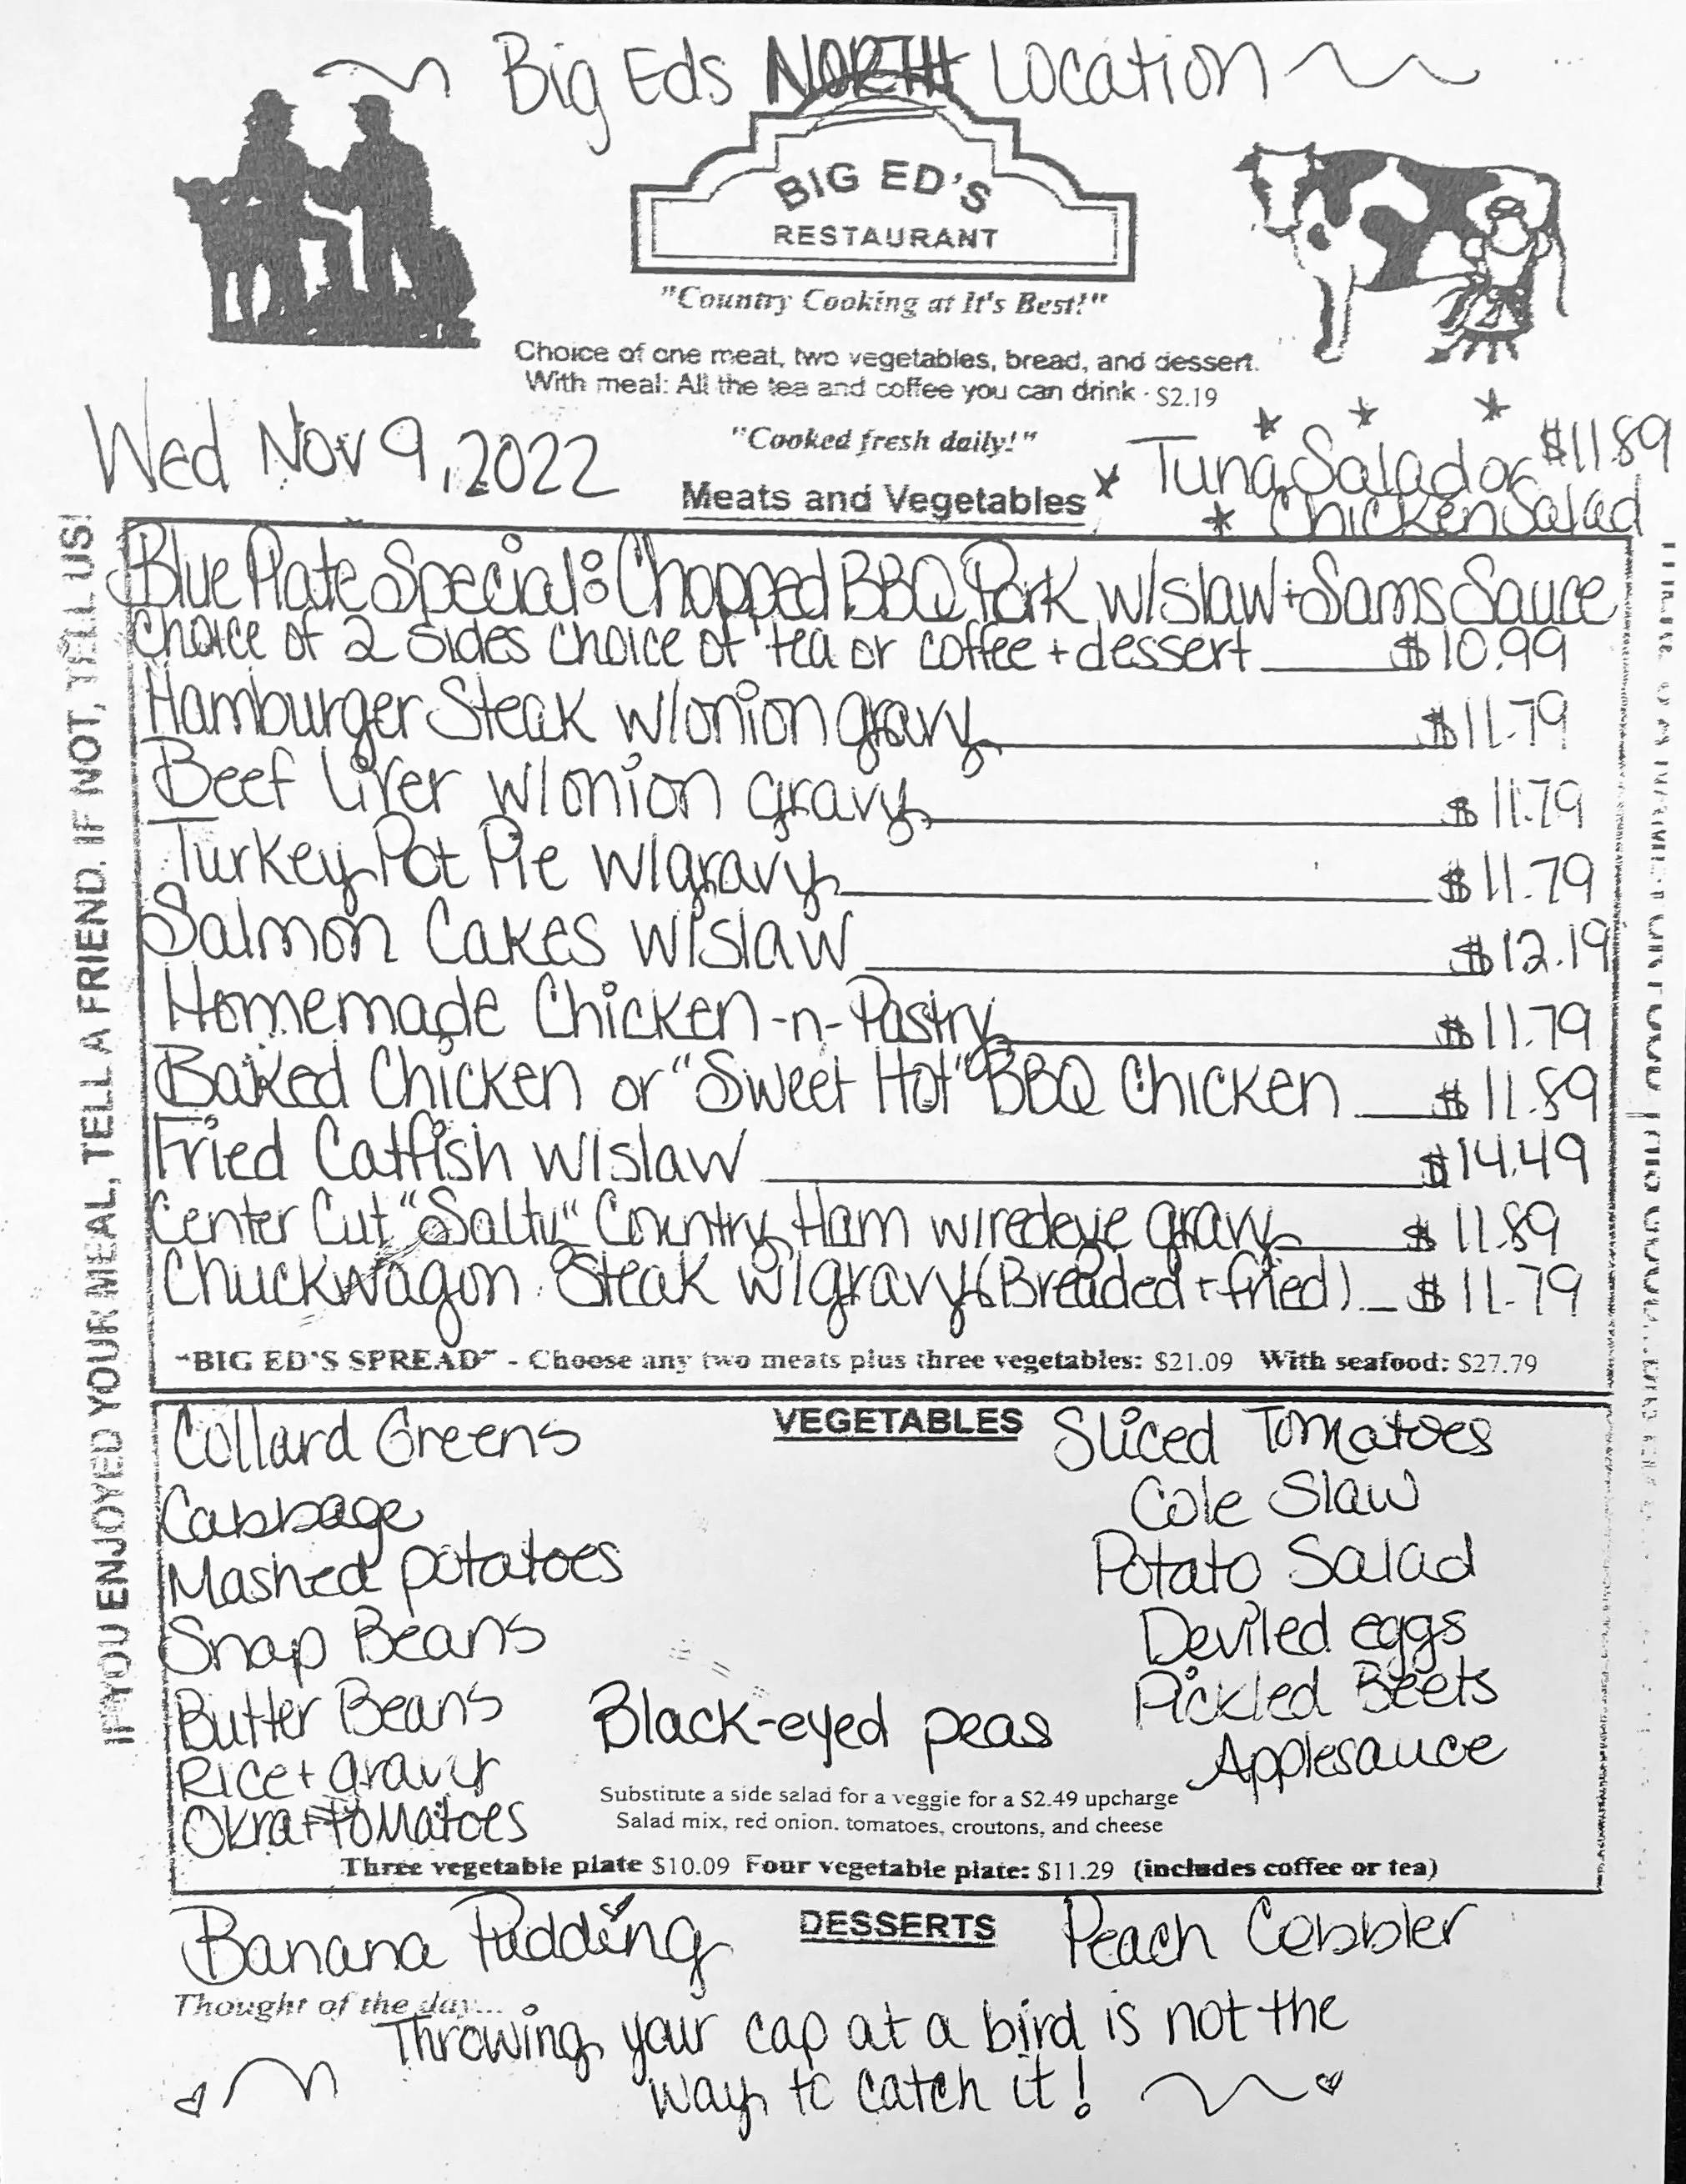 Big Eds NORTH Location
BIG ED'S
RESTAURANT
"Country Cooking at It's Best!"
Choice of one meat, two vegetables, bread, and dessert.
With meal: All the tea and coffee you can drink - $2.19
Wed Nov 9, 2022
"Cooked fresh daily!"
Tuna Salad or $11.89
Chicken Salad
Meats and Vegetables
IF YOU ENJOYED YOUR MEAL, TELL A FRIEND. IF NOT, TELL US!
Blue Plate Special: Chopped BBQ Pork w/slaw + Sams Sauce
Choice of 2 sides choice of tea or coffee + dessert $10.99
Hamburger Steak w/onion gravy $11.79
Beef Liver w/onion gravy $11.79
Turkey Pot Pie w/gravy $11.79
Salmon Cakes w/slaw $12.19
Homemade Chicken-n-Pastry $11.79
Baked Chicken or "Sweet Hot" BBQ Chicken $11.89
Fried Catfish w/slaw $14.49
Center Cut "Salty" Country Ham w/redeye gravy $11.89
Chuckwagon Steak w/gravy (Breaded + fried) $11.79
"BIG ED'S SPREAD" - Choose any two meats plus three vegetables: $21.09 With seafood: $27.79
VEGETABLES
Collard Greens
Cabbage
Mashed potatoes
Snap Beans
Butter Beans
Rice + gravy
Okra + tomatoes
Black-eyed peas
Sliced Tomatoes
Cole Slaw
Potato Salad
Deviled eggs
Pickled Beets
Applesauce
Substitute a side salad for a veggie for a $2.49 upcharge
Salad mix, red onion, tomatoes, croutons, and cheese
Three vegetable plate $10.09 Four vegetable plate: $11.29 (includes coffee or tea)
DESSERTS
Banana Pudding
Peach Cobbler
Thought of the day...
Throwing your cap at a bird is not the
way to catch it!